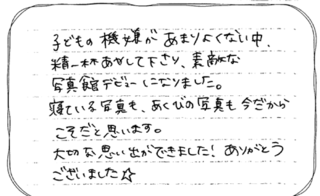 子どもの機嫌があまりよくない中、
精一杯あやして下さり、素敵な
写真館デビューになりました。
寝ている写真も、あくびの写真も今だから
こそだと思います。
大切な思い出ができました！ありがとう
ございました☆